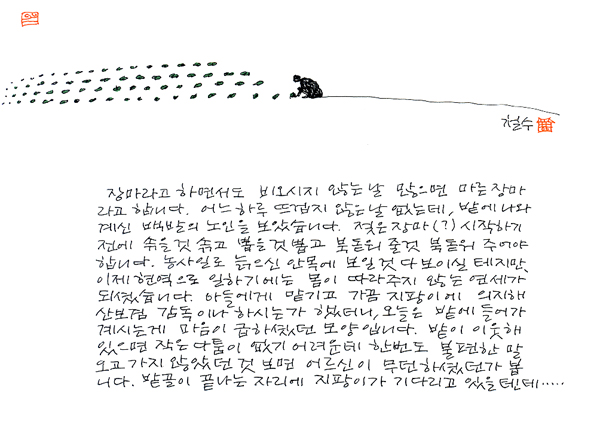 철수
장마라고 하면서도 비오시지 않는날 많으면 마른장마
라고 합니다. 어느하루 뜨겁지 않은날 없는데, 밭에 나와
계신 백발의 노인을 보았습니다. 젖은장마(?) 시작하기
전에 솎을것 솎고 뽑을것 뽑고 북돋워 줄것 북돋워 주어야
합니다. 농사일로 늙으신 안목에 보일것 다 보이실 테지만,
이제 현역으로 일하기에는 몸이 따라주지 않는 연세가
되셨습니다. 아들에게 맡기고 가끔 지팡이에 의지해
산보겸 감독이나 하시는가 했더니, 오늘은 밭에 들어가
계시는게 마음이 급하셨던 모양입니다. 밭이 이웃해
있으면 작은 다툼이 없기 어려운데 한번도 불편한 말
오고 가지 않았던 것 보면 어르신이 무던하셨던가 봅
니다. 밭골이 끝나는 자리에 지팡이가 기다리고 있을텐데.....